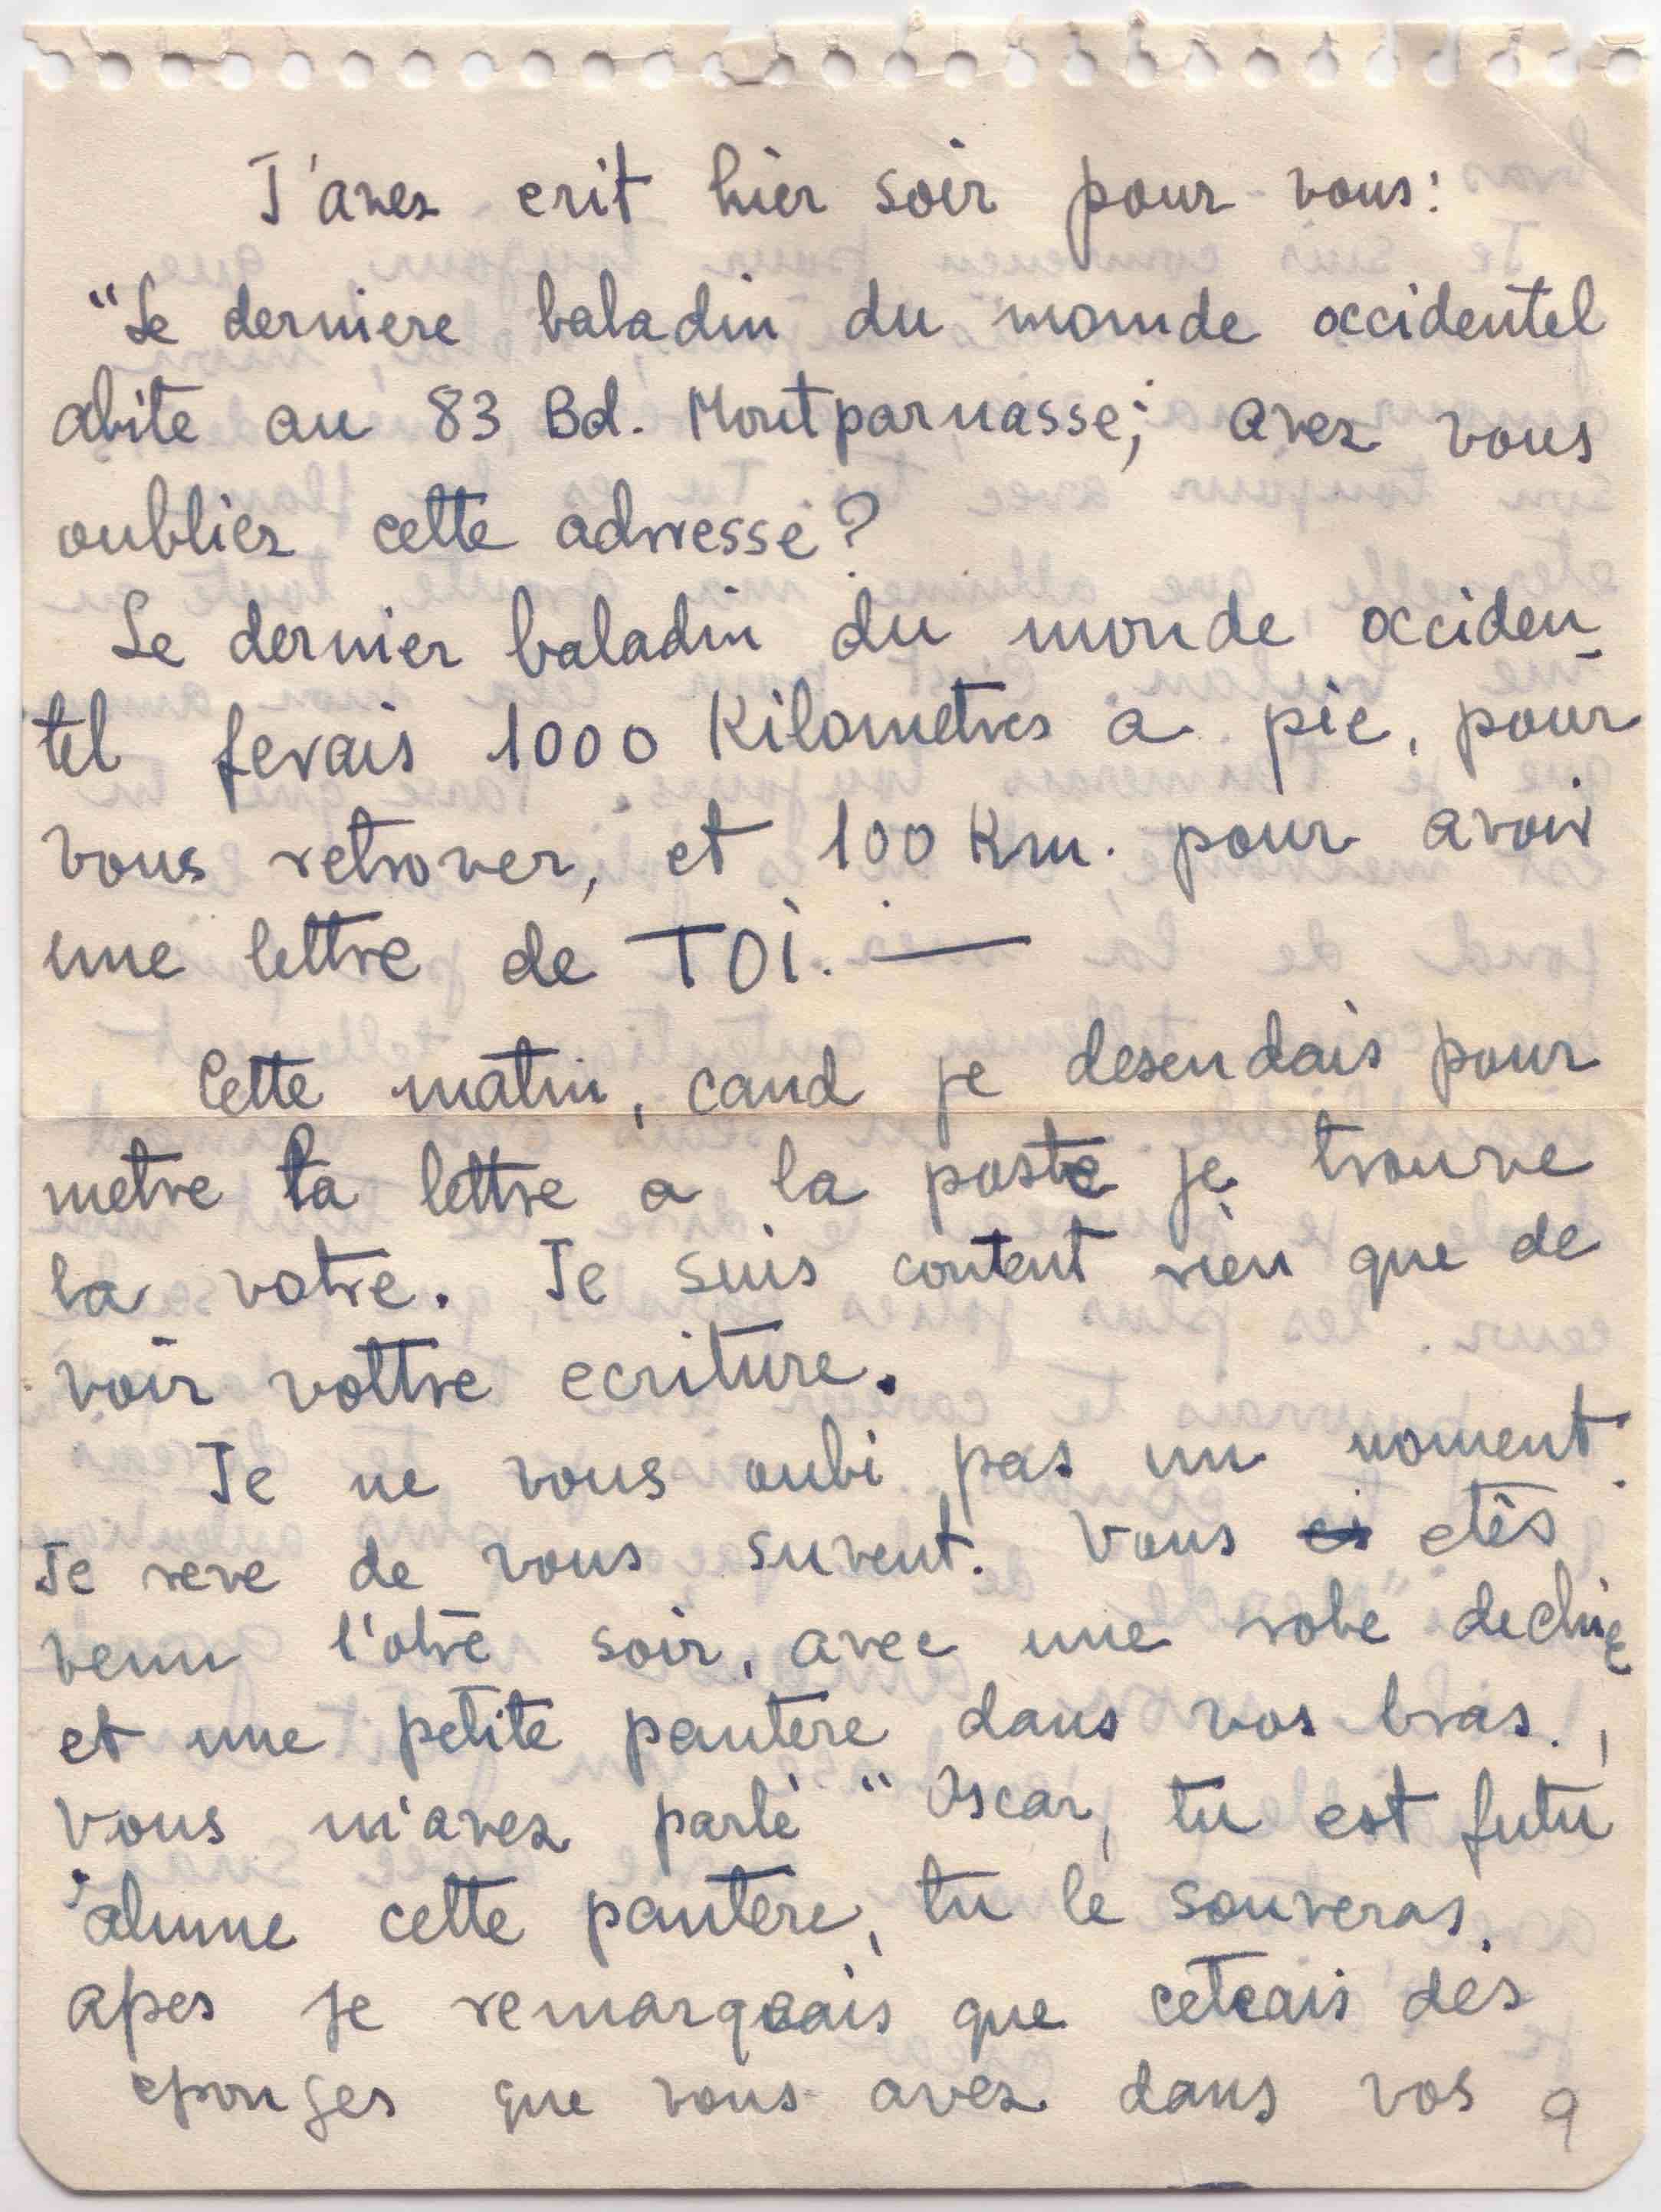 J'avez erit hier soir pour vous:
"Le derniere baladin du momde occidentel
abite au 83 Bd. Montparnasse; avez vous
oubliez cette adrresse?
Le dernier baladin du monde occiden-
tel ferais 1000 Kilometres a pie, pour
vous retrover, et 100 Km. pour avoir
une lettre de TOI. —
Cette matin, cand je desendais pour
metre ta lettre a la poste je trouve
la votre. Je suis content rien que de
voir vottre ecriture.
Je ne vous oubi pas un moment.
Je reve de vous suvent. Vous etês
venu l'otre soir, avec une robe dechie
et une petite pantere dans vos bras.,
vous m'avez parlé "Oscar, tu est futu
alume cette pantere, tu le souveras.
apes je remarqeais que ceteais des
eponges que vous avez dans vos 9